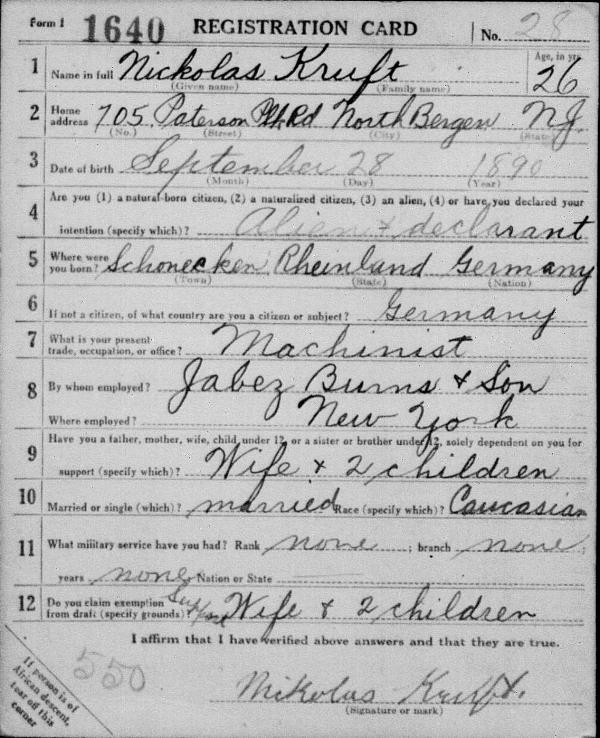 Form 1 1640 REGISTRATION CARD No. 28
1 Name in full Nickolas Kruft Age, in yrs. 26
(Given name) (Family name)
2 Home address 705 Paterson Plk Rd North Bergen N.J.
(No.) (Street) (City) (State)
3 Date of birth September 28 1890
(Month) (Day) (Year)
4 Are you (1) a natural-born citizen, (2) a naturalized citizen, (3) an alien, (4) or have you declared your
intention (specify which)? Alien + declarant
5 Where were you born? Schonecken Rheinland Germany
(Town) (State) (Nation)
6 If not a citizen, of what country are you a citizen or subject? Germany
7 What is your present trade, occupation, or office? Machinist
8 By whom employed? Jabez Burns + Son
Where employed? New York
9 Have you a father, mother, wife, child under 12, or a sister or brother under 12, solely dependent on you for
support (specify which)? Wife + 2 children
10 Married or single (which)? married Race (specify which)? Caucasian
11 What military service have you had? Rank none ; branch none ;
years none Nation or State
12 Do you claim exemption from draft (specify grounds)? Support Wife + 2 children
I affirm that I have verified above answers and that they are true.
550
If person is of
African descent,
tear off this
corner
Nikolas Kruft.
(Signature or mark)